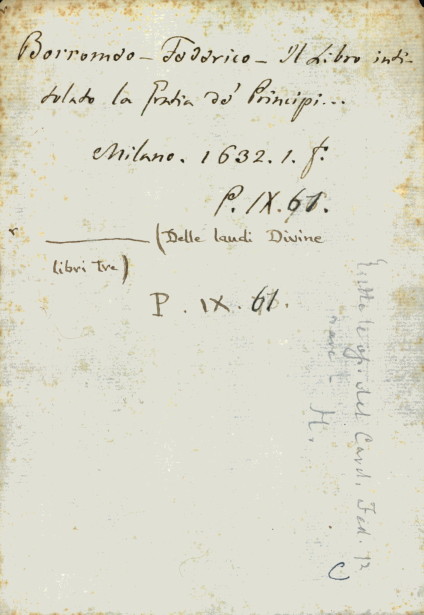 Borromeo - Federico - Il Libro inti-
tolato la Gratia de' Principi...
Milano. 1632. 1. f.
P. IX. 61.
(Delle laudi Divine
libri tre)
P. IX. 61.
Tutte le op. del Card. Fed.
rare - H.
C